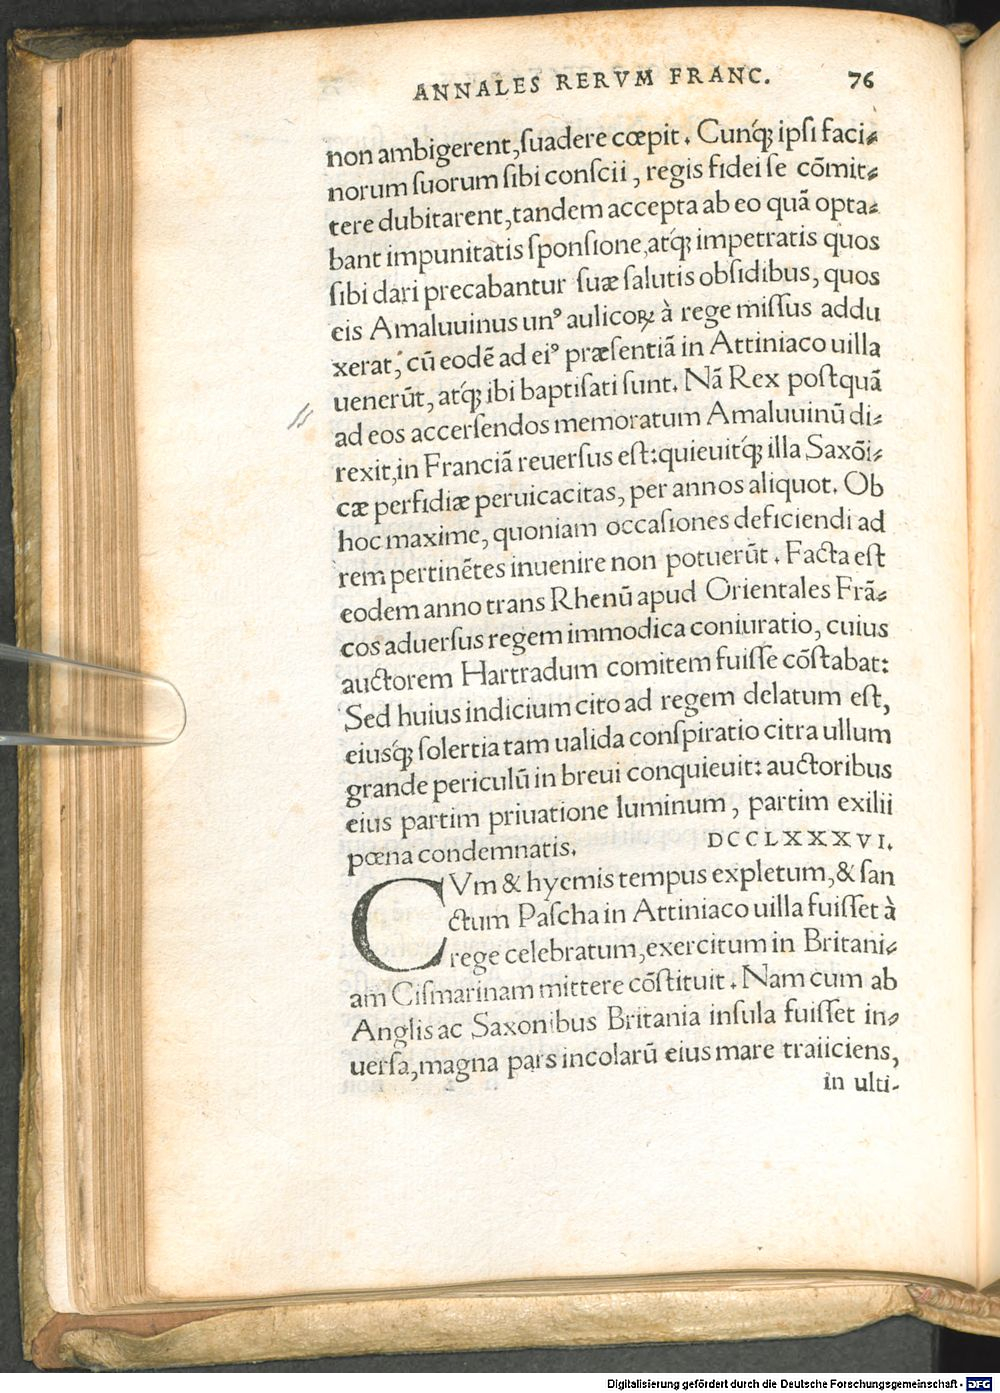 ANNALES RERVM FRANC. 76
non ambigerent, ſuadere cœpit. Cunq́ꝫ ipſi faci⸗
norum ſuorum ſibi conſcii, regis fidei ſe cõmit⸗
tere dubitarent, tandem accepta ab eo quã opta⸗
bant impunitatis ſponſione, atq́ꝫ impetratis quos
ſibi dari precabantur ſuæ ſalutis obſidibus, quos
eis Amaluuinus unꝰ aulicoꝝ à rege miſſus addu
xerat, cũ eodẽ ad eiꝰ præſentiã in Attiniaco uilla
uenerũt, atq́ꝫ ibi baptiſati ſunt. Nã Rex poſtquã
ad eos accerſendos memoratum Amaluuinũ di⸗
rexit, in Franciã reuerſus eſt: quieuitq́ꝫ illa Saxõi⸗
cæ perfidiæ peruicacitas, per annos aliquot. Ob
hoc maxime, quoniam occaſiones deficiendi ad
rem pertinẽtes inuenire non potuerũt. Facta eſt
eodem anno trans Rhenũ apud Orientales Frã⸗
cos aduerſus regem immodica coniuratio, cuius
auctorem Hartradum comitem fuiſſe cõſtabat:
Sed huius indicium cito ad regem delatum eſt,
eiusq́ꝫ ſolertia tam ualida conſpiratio citra ullum
grande periculũ in breui conquieuit: auctoribus
eius partim priuatione luminum, partim exilii
pœna condemnatis. DCCLXXXVI.
CVm & hyemis tempus expletum, & ſan
ctum Paſcha in Attiniaco uilla fuiſſet à
rege celebratum, exercitum in Britani⸗
am Ciſmarinam mittere cõſtituit. Nam cum ab
Anglis ac Saxonibus Britania inſula fuiſſet in⸗
uerſa, magna pars incolarũ eius mare traiiciens,
in ulti-
Digitalisierung gefördert durch die Deutsche Forschungsgemeinschaft - DFG